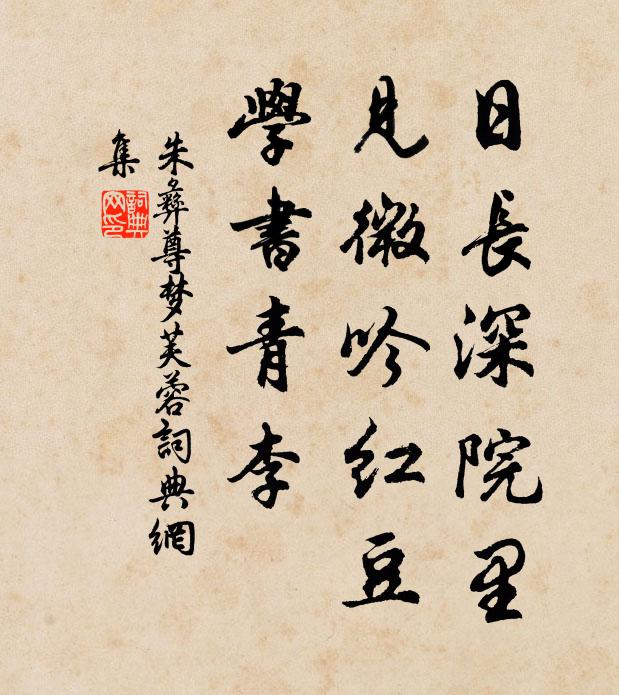 日長深院里
見微吟红豆
學書青李
朱彝尊梦芙蓉詞典網
集
詞典網印